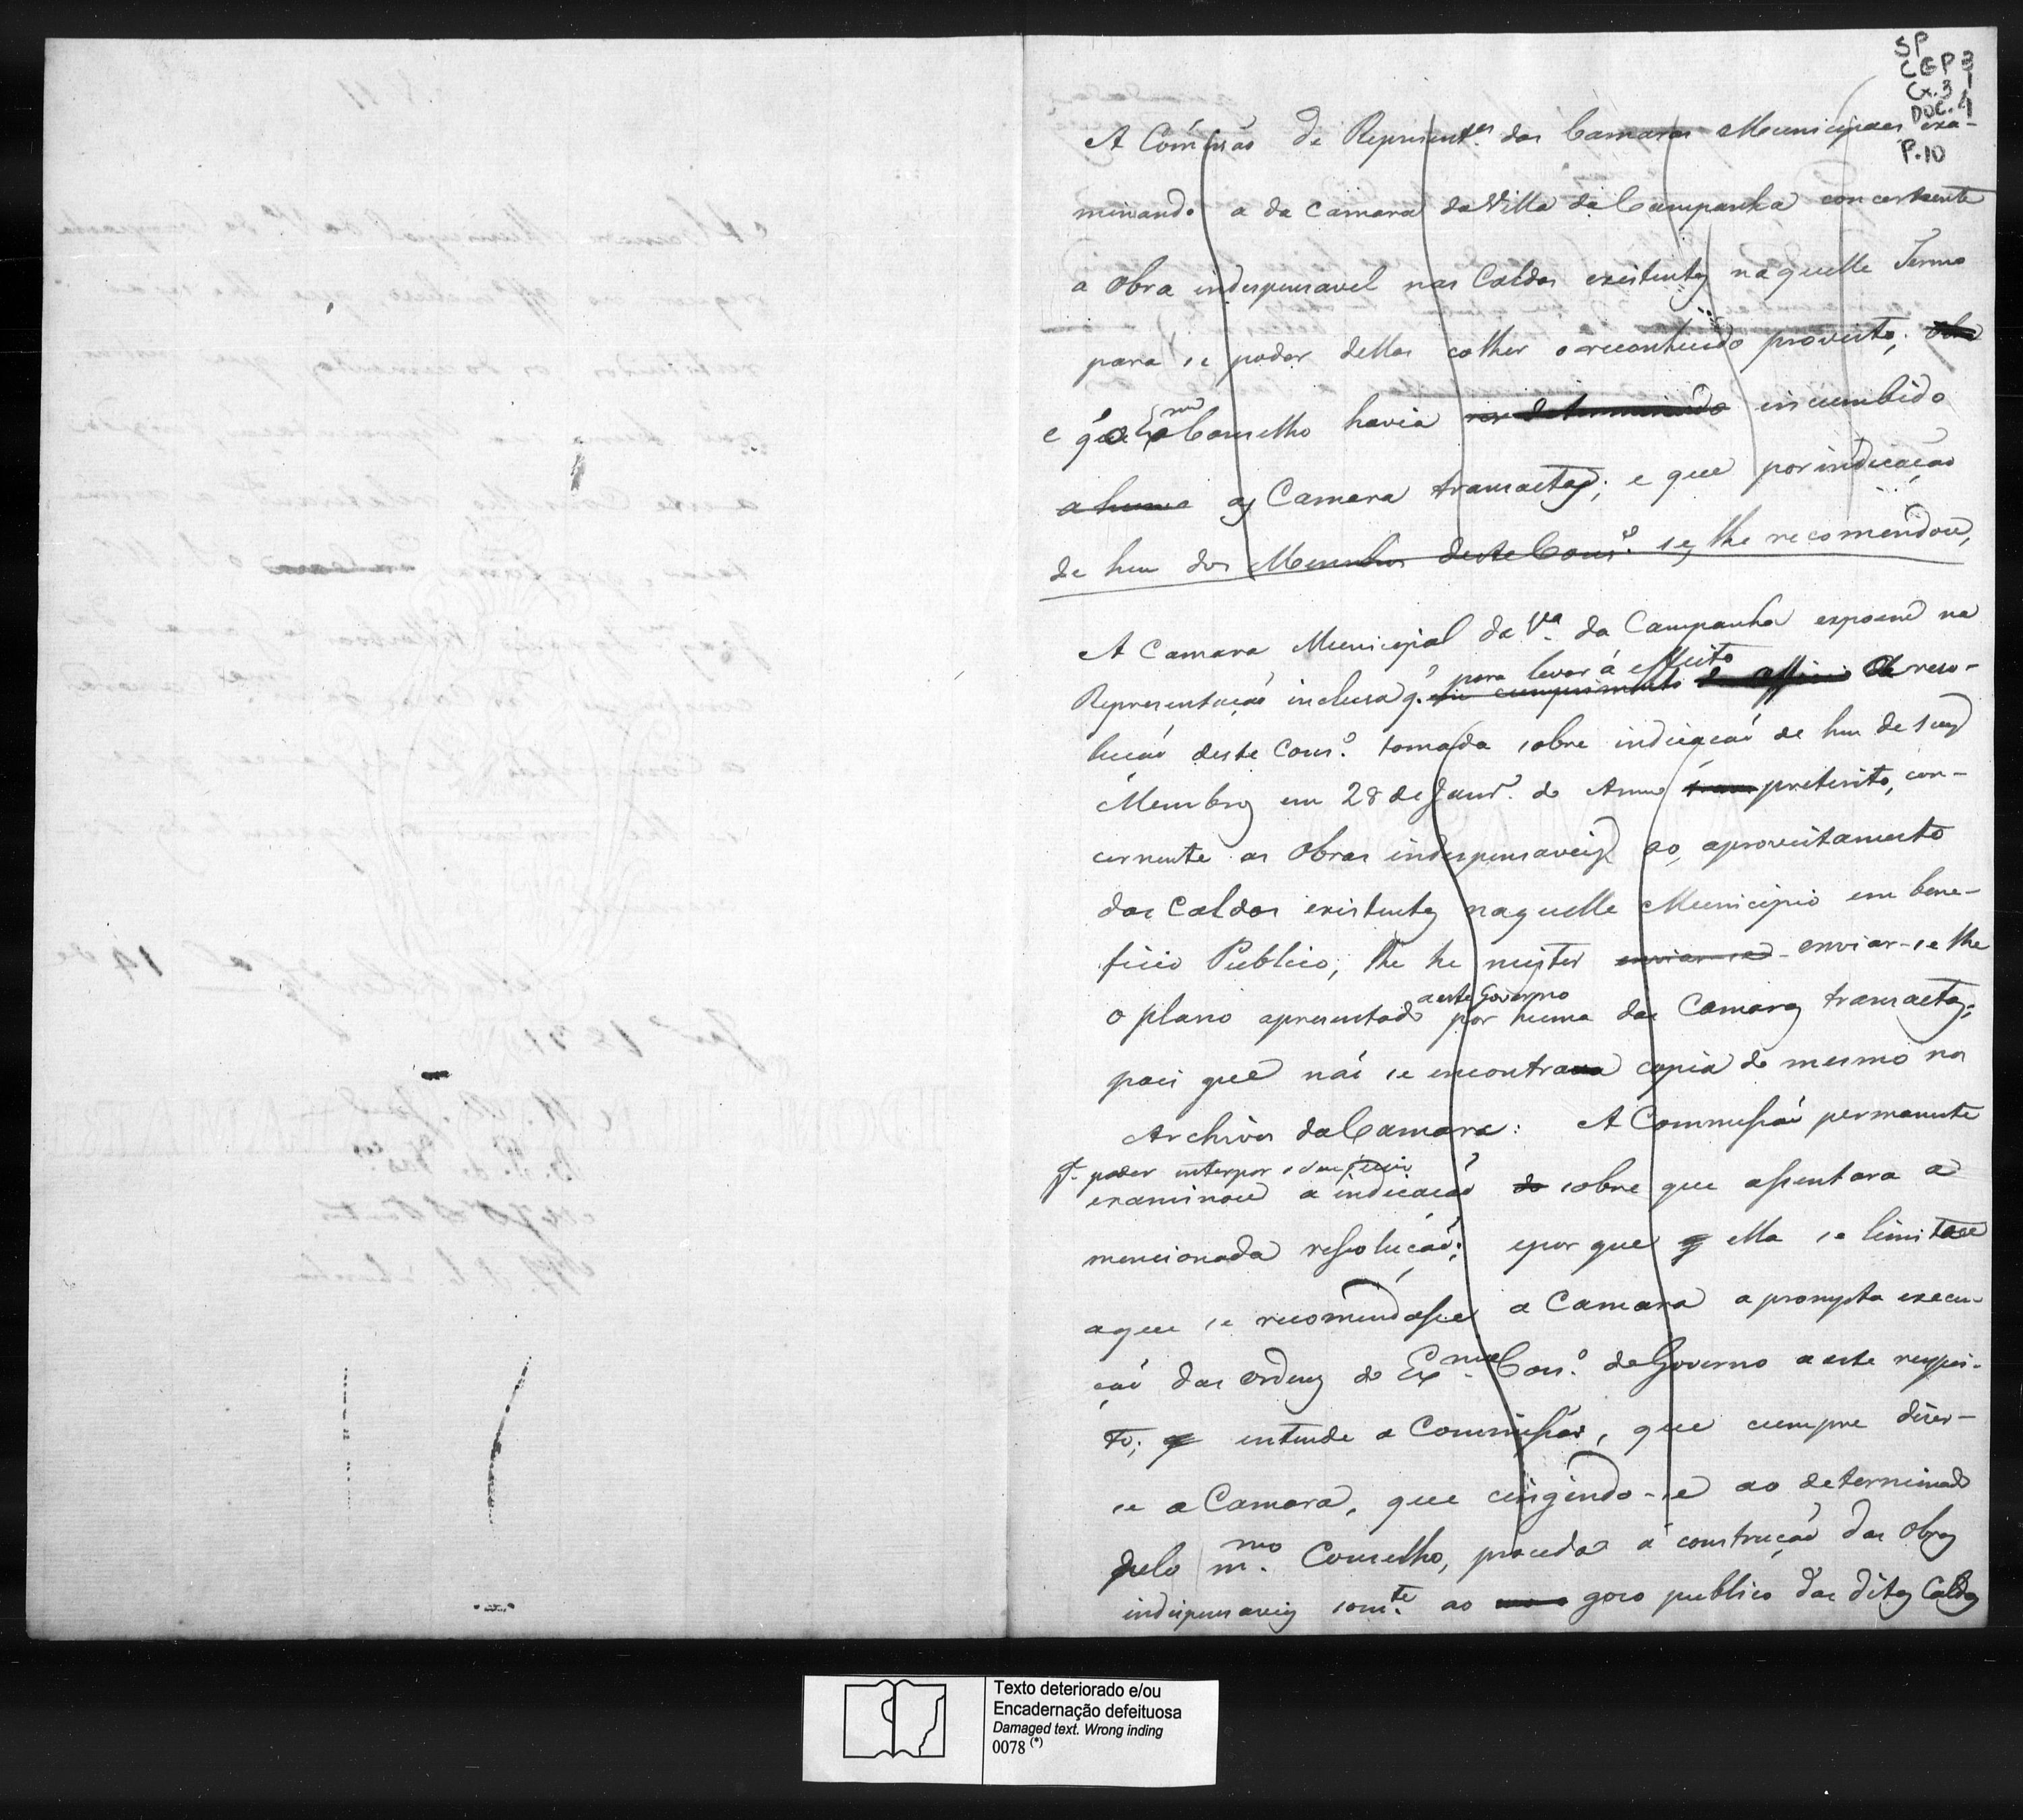 SP
CGP 3
Cx. 3
DOC. 4
P. 10
A Comissão de Represent.es das Camaras Municipaes exa-
minando a da Camara da Villa da Campanha concernente
a Obra indespensavel nas Caldas existentes naquelle Termo
para se poder dellas colher o reconhecido proveito;
e que o Ex.mo Conselho havia incumbido
a huma as Camara transactas; e que por indicação
de hum dos Membros deste Cons.o se lhe recomendou,
A Camara Municipal da V.a da Campanha expoem na
para levar á effeito
Representação inclusa q. em cumprimento de officio de reso-
lução deste Cons.o tomada sobre indicação de hum de seus
Membros em 28 de Janr.o do Anno preterito, con-
cernente as Obras indespensaveis ao aproveitamento
das Caldas existentes naquelle Municipio em bene-
ficio Publico, lhe he mister enviar-se enviar-se lhe
a este Governo
o plano apresentado por huma das Camaras transactas;
pois que não se encontra copia do mesmo nos
Archivos da Camara: A Commissão permanente
p.a poder interpor seu juizo
examinou a indicação do sobre que assentara a
mencionada resolução; e por que ella se limitou
a que se recomendasse a Camara a prompta execu-
ção das ordens do Ex.mo Cons.o de Governo a este respei-
to; entende a Commissão, que cumpre dizer-
se a Camara, que cingindo-se ao determinado
pelo m.mo Conselho, proceda á construção das Obras
indispensaveis som.te ao goso publico das ditas Caldas
Texto deteriorado e/ou
Encadernação defeituosa
Damaged text. Wrong inding
0078 (*)